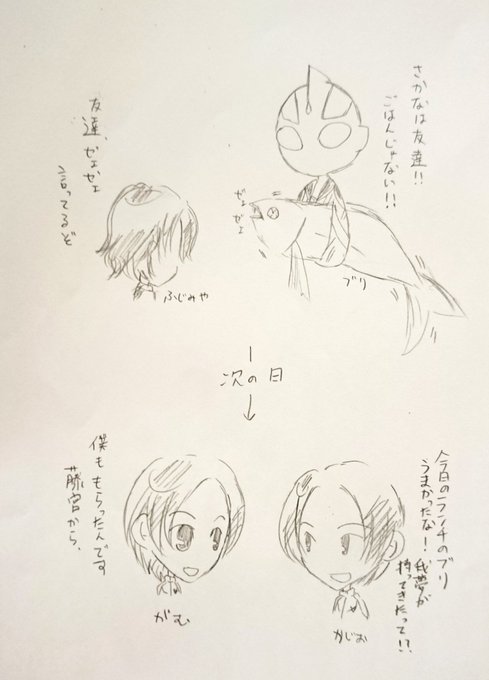 さかなは友達!!
ごはんじゃない!!
ぜぇ
ぜぇ
ブリ
友達、ぜぇぜぇ
言ってるぞ
ふじみや
次の日
今日のランチのブリ
うまかったな!我夢が
持ってきたって!?
かじお
僕ももらったんです
藤宮から、
がむ